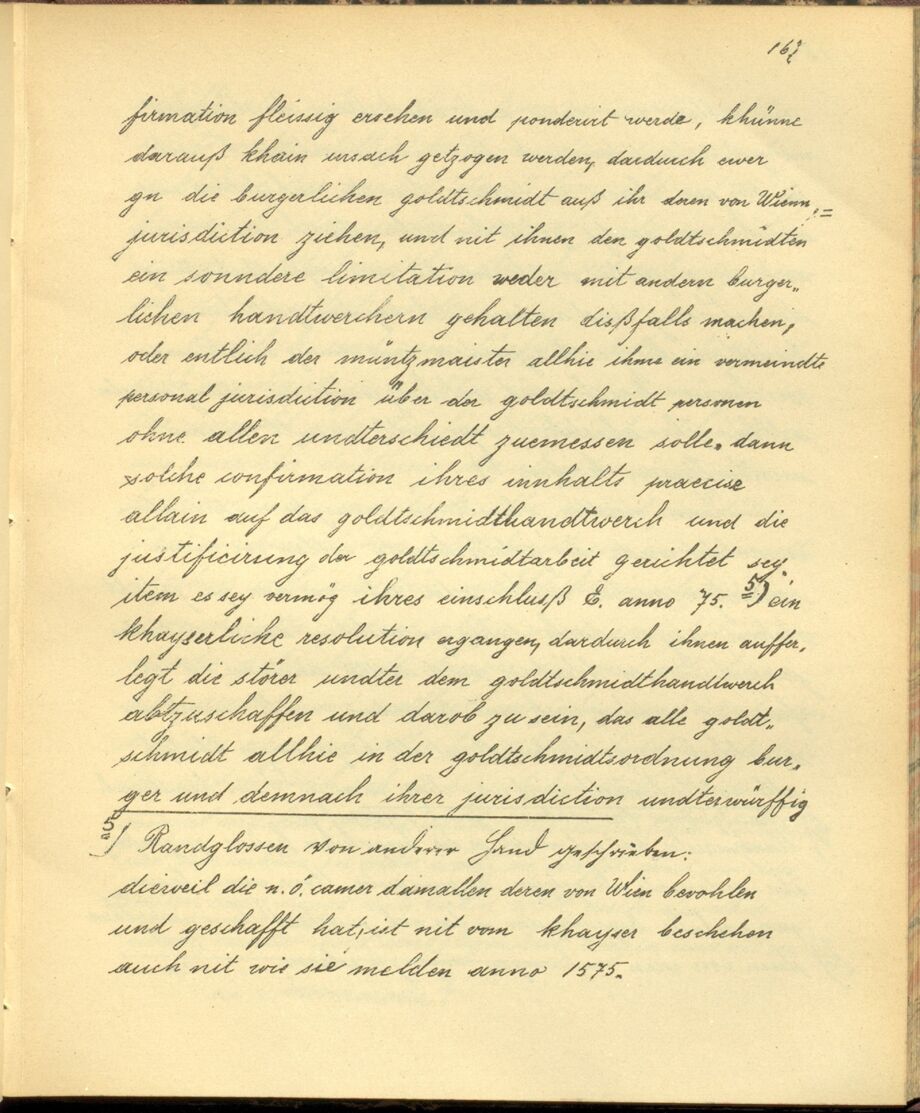 162
firmation fleissig ersehen und ponderirt werde, khünne
darauß khain ursach getzogen werden, dardurch ewer
gn die burgerlichen goldtschmidt auß ihr deren von Wienn,=
jurisdiction ziehen, und nit ihnen den goldtschmidten
ein sonndere limitation weder mit andern burger„
lichen handtwerchern gehalten dißfalls machen,
oder entlich der müntzmaister allhie ihme ein vermeindte
personal jurisdiction über der goldtschmidt personen
ohne allen undterschiedt zuemessen solle. dann
solche confirmation ihres innhalts praecise
allain auf das goldtschmidthandtwerch und die
justificirung der goldtschmidtarbeit gerichtet sey.
item es sey vermög ihres einschluß E. anno 75. 5) ein
khayserliche resolution ergangen, dardurch ihnen auffer„
legt die störer undter dem goldtschmidthandtwerch
abtzuschaffen und darob zu sein, das alle goldt„
schmidt allhie in der goldtschmidtsordnung bur„
ger und demnach ihrer jurisdiction undterwürffig
5) Randglossen von anderer Hand geschrieben:
dieweil die n. ö. camer damallen deren von Wien bevohlen
und geschafft hat, ist nit vom khayser beschehen
auch nit wie sie melden anno 1575.